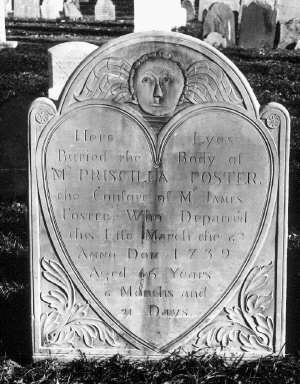 Here Lyes
Buried the Body of
Mrs PRISCILLA FOSTER,
the Consort of Mr JAMES
FOSTER Who Departed
this Life March the 6th
ANNO DOM 1739
Aged 46 Years
6 Months and
21 Days.